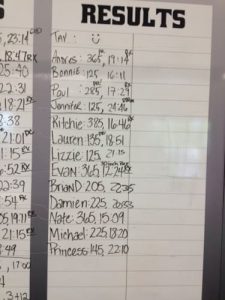 RESULTS
TAV: ☺
Andres: 365, 19:14
Bonnie: 125, 16:11
Paul: 285, 17:29
Jennifer: 125,
Ritchie: 325, 16:46
Lauren: 135, 18:51
Lizzie: 125, 21:15
EVAN: 365, 12:24 RX
BrianD: 205,
Damien: 225,
Nate: 365, 15:09
Michael: 225, 18:20
Princess: 145, 22:10
S
, 23:14
18:47 RX
25:40
22:31
18:21
8:38
21:01
1:15 RX
6:52 RX
22:39
:54
05, 19:11
21:15
8:49
, 17:00
, 3+12